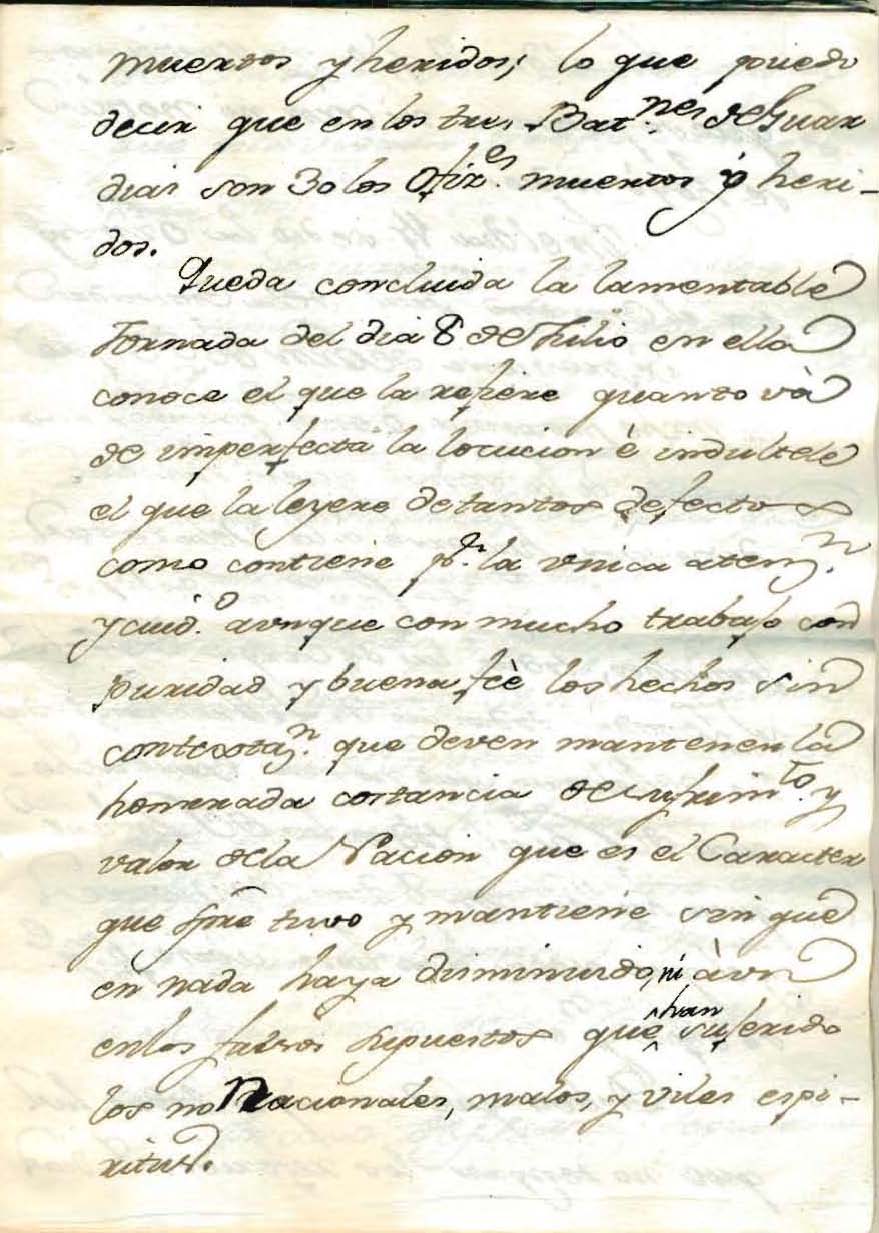 muertos y heridos; lo que puedo
decir que en los tres Bat.nes de Guar
dias son 30 los Ofiz.es muertos y heri-
dos.
Queda concluida la lamentable
Jornada del dia 8 de Julio en ella
conoce el que la refiere quanto và
de imperfecta la locucion è indultele
el que la leyere de tantos defectos
como contiene p.r la vnica atenz.n
y cuid.o aunque con mucho trabajo con
puridad y buena feè los hechos sin
contextaz.n que deven mantener la
honrrada costancia de sufrim.to y
valor de la Nacion que es el Caracter
que sþre tuvo y mantiene sin que
en nada haya disminuido, ni àvn
en los falsos supuestos que han suferido
los no Nacionales, malos, y viles espi-
ritus.